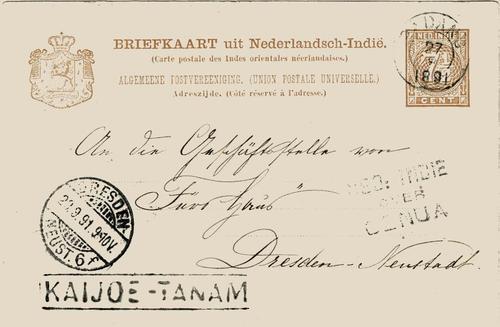 BRIEFKAART uit Nederlandsch-Indië.
(Carte postale des Indes orientales néerlandaises.)
ALGEMEENE POSTVEREENIGING, (UNION POSTALE UNIVERSELLE.)
Adreszijde. (Côté réservé à l'adresse.)
NED. INDIE
CENT
27
1891
An die Geschäftsstelle von
"Fürs Haus"
Dresden-Neustadt.
NED. INDIE
OVER
GENUA
DRESDEN.
22.9.91.9-10V.
NEUST. 6
KAIJOE-TANAM